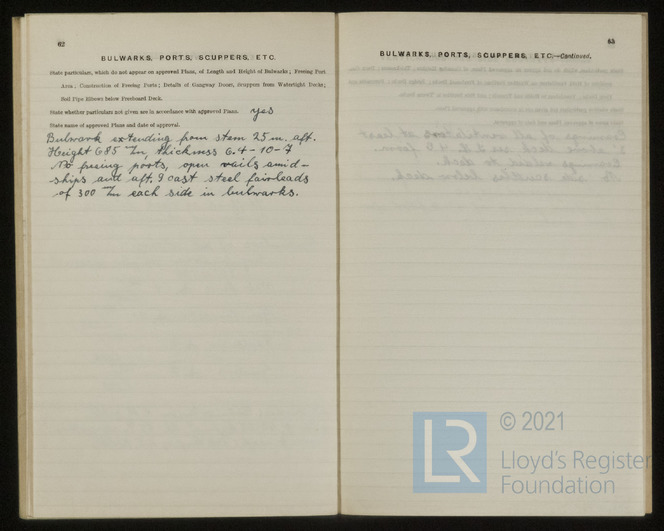 62
BULWARKS, PORTS, SCUPPERS, ETC.
State particulars, which do not appear on approved Plans, of Length and Height of Bulwarks; Freeing Port
Area; Construction of Freeing Ports; Details of Gangway Doors, Scuppers from Watertight Decks;
Soil Pipe Elbows below Freeboard Deck.
State whether particulars not given are in accordance with approved Plans. yes
State name of approved Plans and date of approval.
Bulwark extending from stem 25 m. aft.
Height 685 m/m, thickness 6.4-10-7
No freeing ports, open rails amid-
ships and aft. 9 cast steel fairleads
of 300 m/m each side in bulwarks.
63
BULWARKS, PORTS, SCUPPERS, ETC.—Continued.
LR
© 2021
Lloyd's Register
Foundation